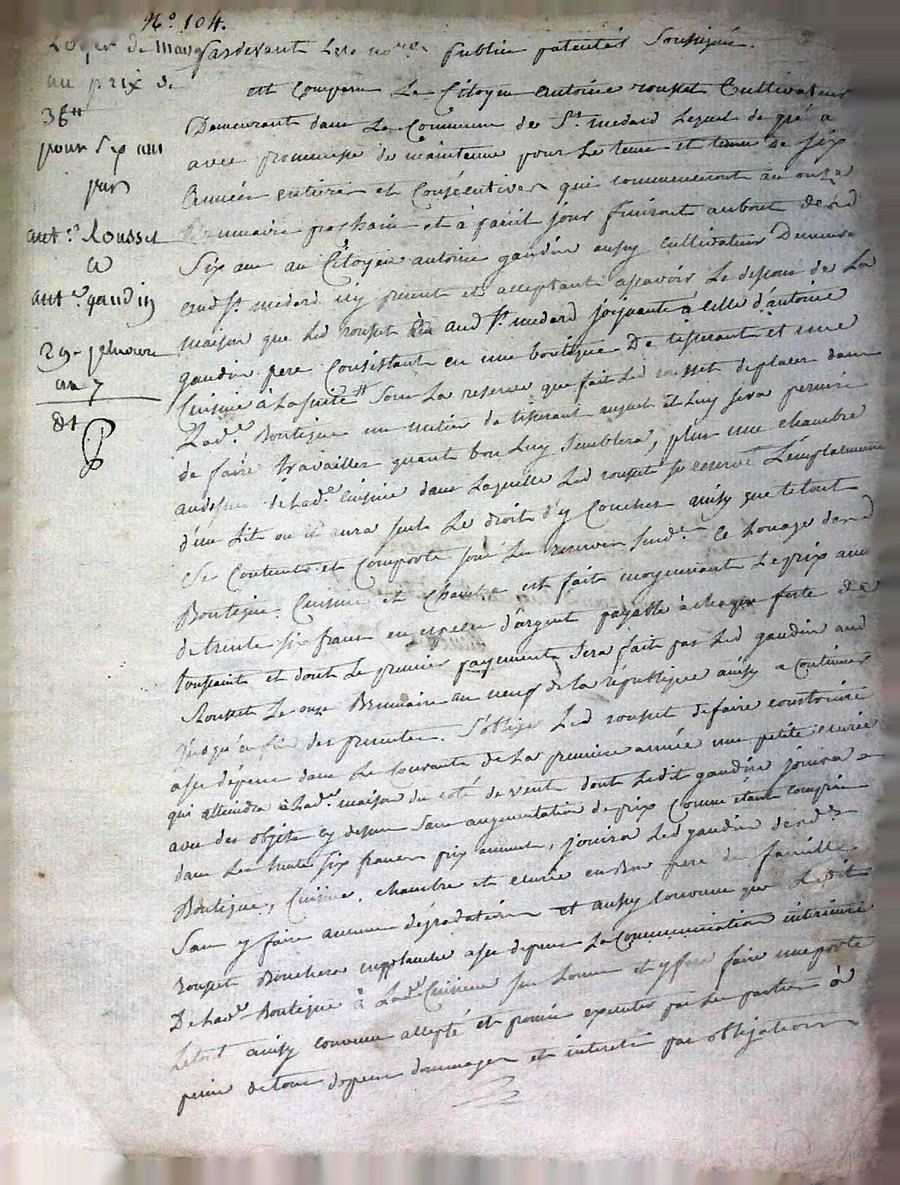 N.º 104.
Loyer de maison
au prix de
36 tt
pour Six ans
par
ant.e Rousset
a
ant.e gaudin
29. pluviose
an 7
Pardevant Le no.re public patenté Soussigné.
est Comparu Le Citoyen antoine rousset Cultivateur
Demeurant dans La Commune de St. medard Lequel de gré a
avec promesse de maintenue pour Le tems et terme de six
années entieres et Consécutives qui commenceront au onze
Brumaire prochain et a pareil jour finiront au bout desd
Six ans au Citoyen antoine gaudin aussy cultivateur Demeurt
aud St. medard icy present et acceptant ascavoir Le dessous de La
maison que Led rousset aud St. medard joignante a celle d'antoine
gaudin pere Consistant en une boutique De tisserant et une
Cuisine à La suitte Sous La reserve que fait Led rousset de placer dans
Lad.e Boutique un metier de tisserant auquel il Luy sera permis
de faire travailler quant bon Luy Semblera, plus une chambre
audessus de Lad.e Cuisine dans Laquelle Led rousset se reserve L'emplacement
d'un Lit ou il aura seul Le droit d'y Coucher ainsy que le tout
Se Contient et Comporte sous Les reserves susd.es Ce Louage desd
Boutique Cuisine et Chambre est fait moyennant Le prix annuel
de trente six francs en especes d'argent payable à chaque feste de
toussaint et dont Le premier payement Sera fait par Led gaudin aud
Rousset Le onze Brumaire an neuf de la république ainsy a Continuer
jusqu'en fin des presentes. S'oblige Led rousset de faire construire
a ses dépens dans Le Courant de La premiere année une petite ecurie
qui atteindra à Lad.e maison du coté de vent dont Ledit gaudin jouira
avec des objets cy dessus Sans augmentation de prix Comme étant compris
dans Les trente six francs prix annuel, jouira Led gaudin desd.s
Boutique, Cuisine, chambre et ecurie en Bon pere de famille
San y faire aucune dégradation et aussy Convenu que Le dit
rousset Bouchera a ses depens La Communication interieure
De Lad.e Boutique à Lad.e Cuisine et y fera faire une porte
Le tout ainsy convenu accepté et promis executer par Les parties à
peine de tous depens dommages et interets par obligation